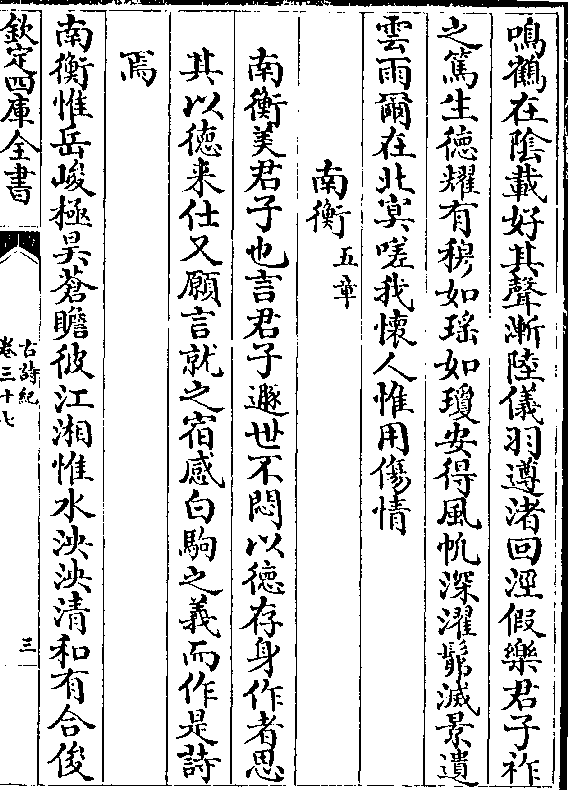 鳴鶴在陰載好其聲漸陸儀羽遵渚回涇假樂君子祚
之篤生德耀有穆如瑤如瓊安得風帆深濯髴滅景遺
雲雨爾在北冥嗟我懷人惟用傷情
南衡五章
南衡美君子也言君子遯世不悶以德存身作者思
其以德来仕又願言就之宿感白駒之義而作是詩
焉
南衡惟岳峻極昊蒼瞻彼江湘惟水泱泱清和有合俊
欽定四庫全書
古詩紀
卷三十七
三